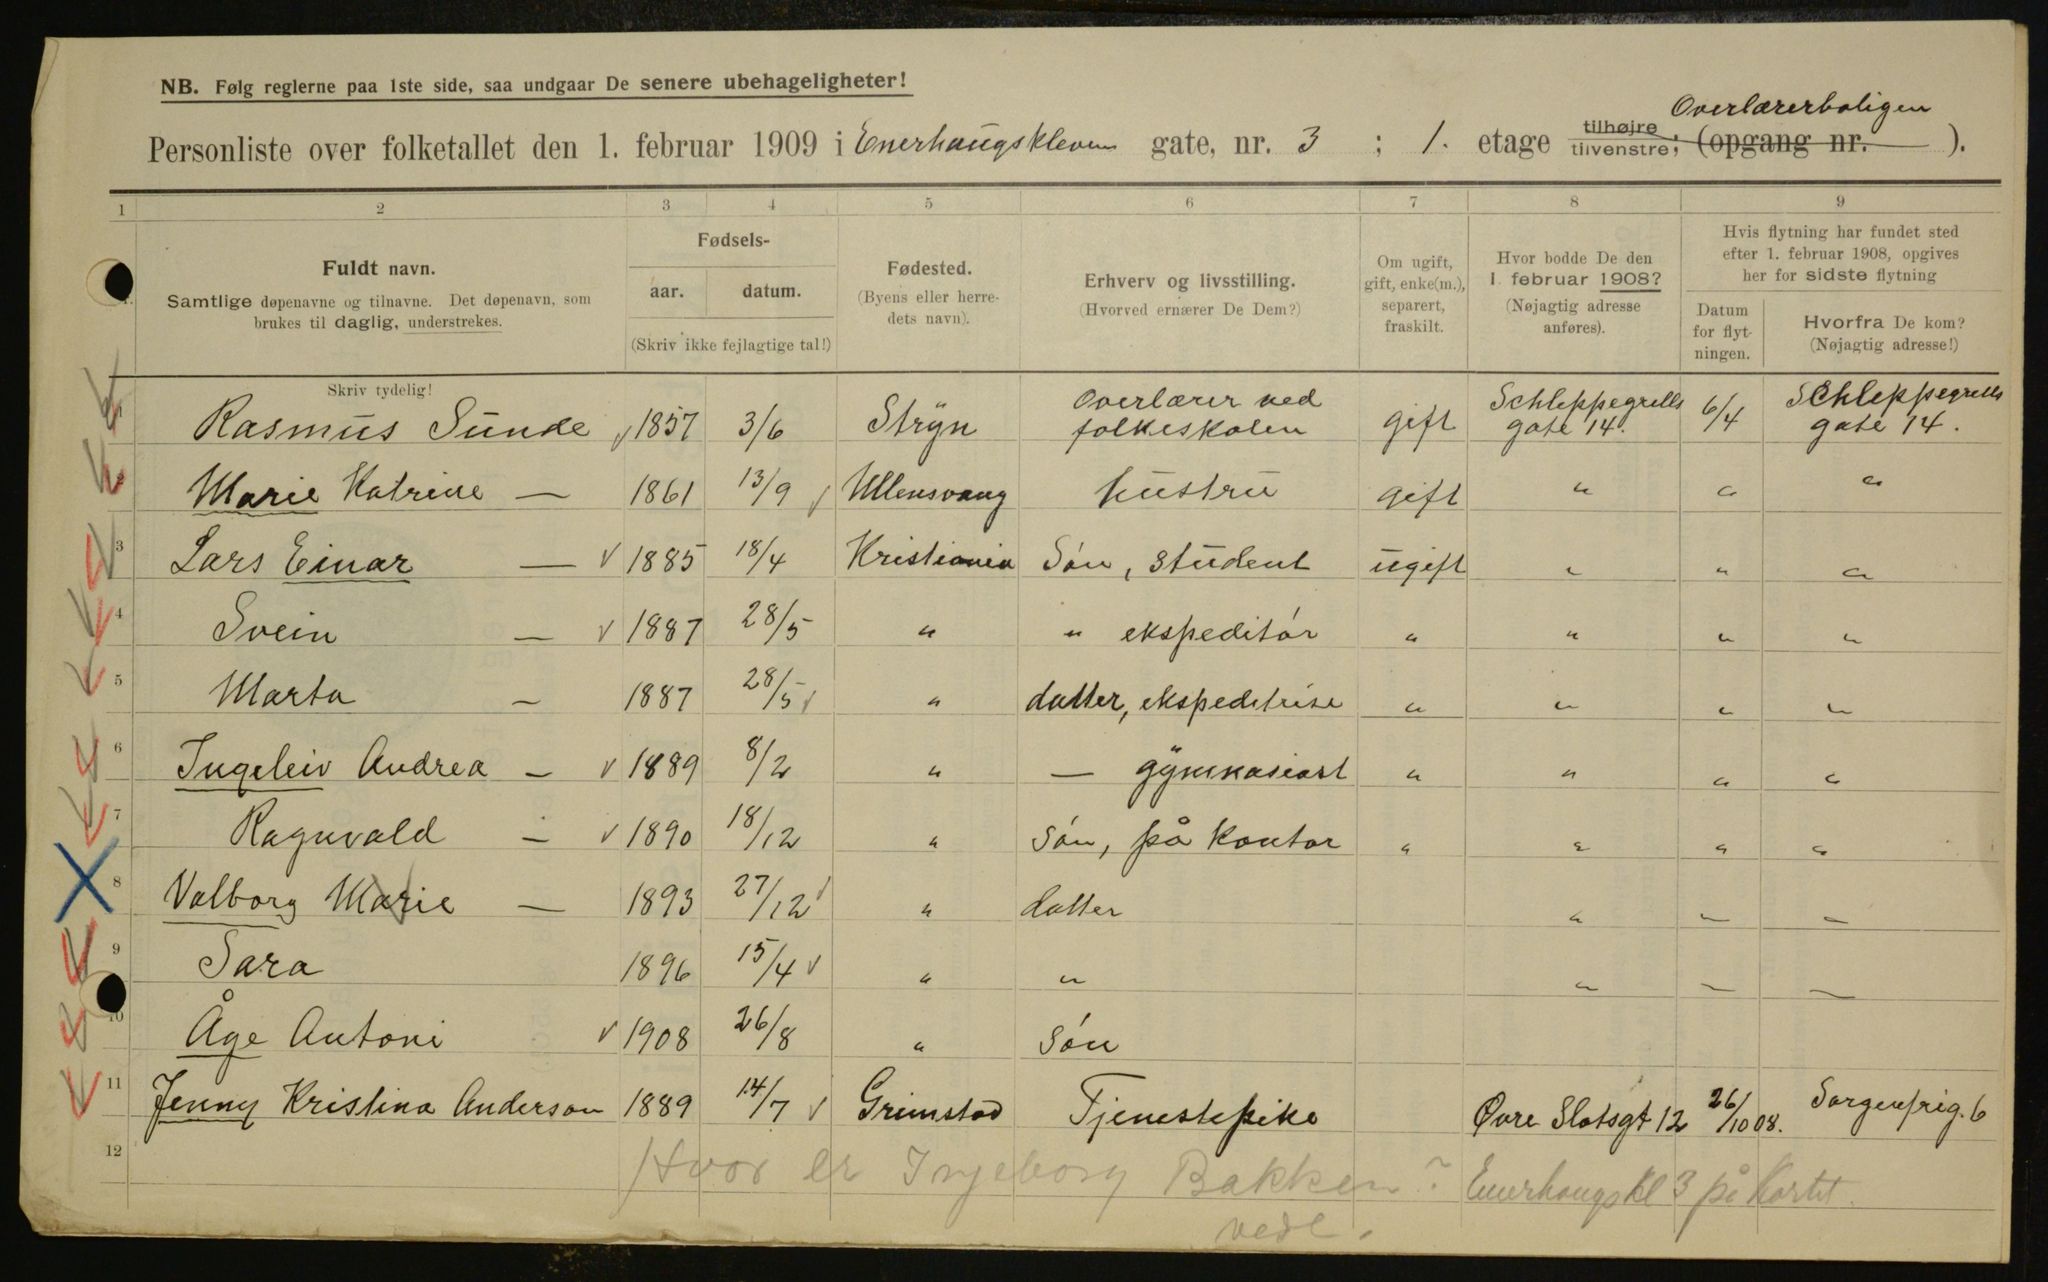 NB. Følg reglerne paa 1ste side, saa undgaar De senere ubehageligheter!
Overlærerboligen
Personliste over folketallet den 1. februar 1909 i Enerhaugskleven gate, nr. 3 ; 1. etage tilhøjre tilvenstre; (opgang nr. ).
1 2 3 4 5 6 7 8 9
Fuldt navn.
Samtlige døpenavne og tilnavne. Det døpenavn, som
brukes til daglig, understrekes.
Fødsels-
aar. datum.
(Skriv ikke fejlagtige tal!)
Fødested.
(Byens eller herre-
dets navn).
Erhverv og livsstilling.
(Hvorved ernærer De Dem?)
Om ugift,
gift, enke(m.),
separert,
fraskilt.
Hvor bodde De den
1. februar 1908?
(Nøjagtig adresse
anføres).
Hvis flytning har fundet sted
efter 1. februar 1908, opgives
her for sidste flytning
Datum
for flyt-
ningen.
Hvorfra De kom?
(Nøjagtig adresse!)
Skriv tydelig!
1 Rasmus Sunde 1857 3/6 Stryn Overlærer ved folkeskolen gift Schleppegrells gate 14. 6/4 Schleppegrells gate 14.
2 Marie Katrine — 1861 13/9 Ullensvang hustru gift " " "
3 Lars Einar — 1885 18/4 Kristiania Søn, student ugift " " "
4 Svein — 1887 28/5 " " ekspeditør " " " "
5 Marta — 1887 28/5 " datter, ekspeditrise " " " "
6 Ingeleiv Andrea — 1889 8/2 " — gymnasiast " " " "
7 Ragnvald — 1890 18/12 " Søn, på kontor " " " "
8 Valborg Marie — 1893 27/12 " datter " — —
9 Sara 1896 15/4 " " " — —
10 Åge Antoni 1908 26/8 " Søn
11 Jenny Kristina Anderson 1889 14/7 Grimstad Tjenestepike Øvre Slotsgt 12 26/10 08. Sorgenfrig. 6
12 Hvor er Ingeborg Bakken? Enerhaugskl 3 på kortet.
vedl.